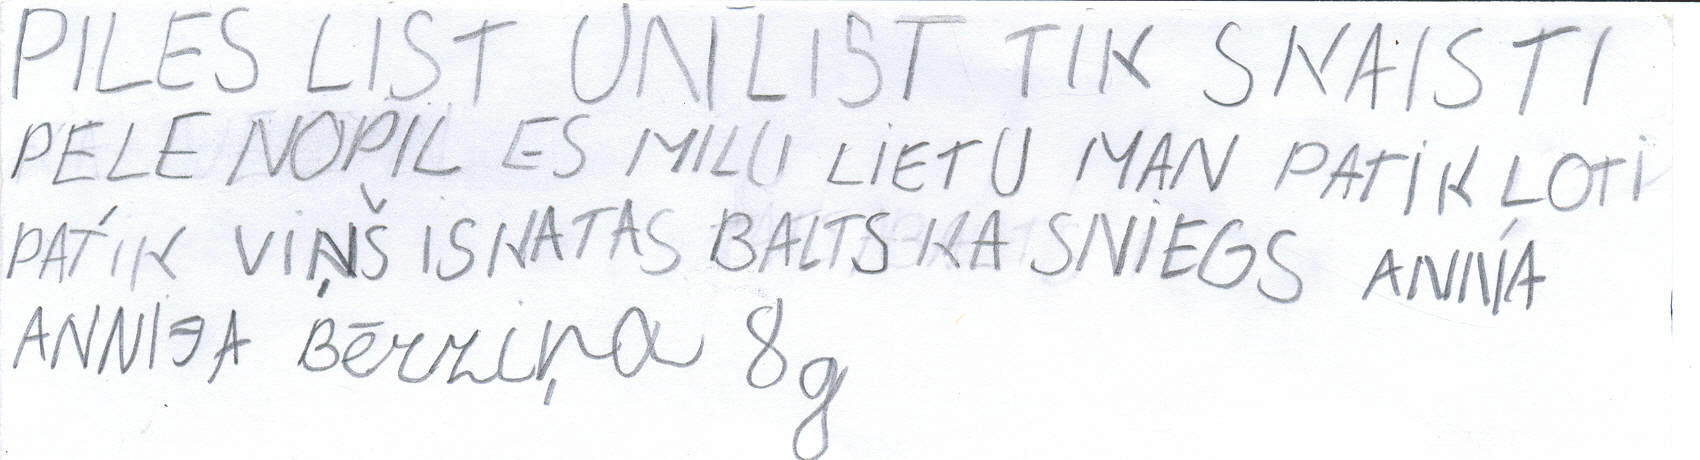 PILES LIST UN LIST TIK SKAISTI
PELE NOPIL ES MILU LIETU MAN PATIK LOTI
PATIK VIŅŠ ISKATAS BALTS KA SNIEGS ANNIA
ANNIJA Bērziņa 8g